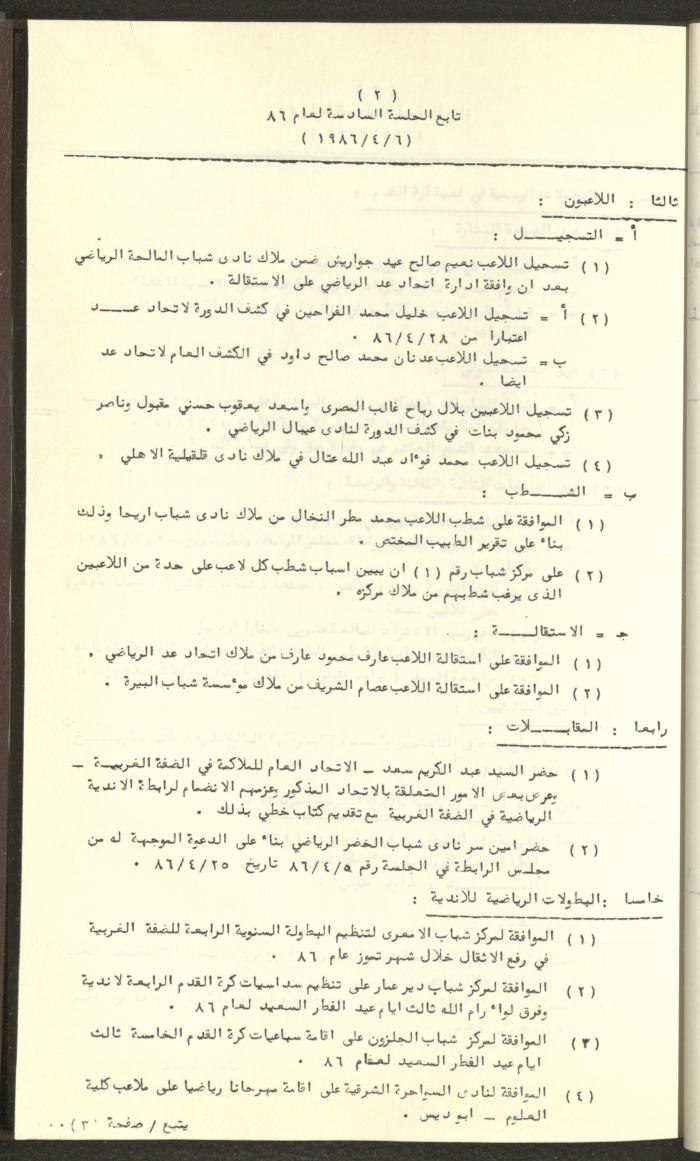 ( ٢ )
تابع الجلسة السادسة لعام ٨٦
( ١٩٨٦/٤/٦ )
ثالثا : اللاعبون :
أ = التسجيـــل :
( ١ ) تسجيل اللاعب نعيم صالح عيد جواريش ضمن ملاك نادى شباب المالحة الرياضي
بعد ان وافقة ادارة اتحاد عد الرياضي على الاستقالة .
( ٢ ) أ = تسجيل اللاعب خليل محمد الفراحين في كشف الدورة لاتحاد عـــد
اعتبارا من ٨٦/٤/٢٨ .
ب = تسجيل اللاعب عدنان محمد صالح داود في الكشف العام لاتحاد عد
ايضا .
( ٣ ) تسجيل اللاعبين بلال رباح غالب المصرى واسعد يعقوب حسني مقبول وناصر
زكي محمود بنات في كشف الدورة لنادى عيبال الرياضي .
( ٤ ) تسجيل اللاعب محمد فوءاد عبد الله عتال في ملاك نادى قلقيلية الاهلي .
ب = الشـــطب :
( ١ ) الموافقة على شطب اللاعب محمد مطر النخال من ملاك نادى شباب اريحا وذلك
بناء على تقرير الطبيب المختص .
( ٢ ) على مركز شباب رقم ( ١ ) ان يبين اسباب شطب كل لاعب على حدة من اللاعبين
الذى يرغب شطبهم من ملاك مركزه .
جـ = الاستقالـــة :
( ١ ) الموافقة على استقالة اللاعب عارف محمود عارف من ملاك اتحاد عد الرياضي .
( ٢ ) الموافقة على استقالة اللاعب عصام الشريف من ملاك موءسسة شباب البيرة .
رابعا : المقابـــلات :
( ١ ) حضر السيد عبد الكريم سعد ــ الاتحاد العام للملاكمة في الضفة الغربيــة ــ
وعرض بعض الامور المتعلقة بالاتحاد المذكور وعزمهم الانضمام لرابطة الاندية
الرياضية في الضفة الغربية مع تقديم كتاب خطي بذلك .
( ٢ ) حضر امين سر نادى شباب الخضر الرياضي بناء على الدعوة الموجهة له من
مجلس الرابطة في الجلسة رقم ٨٦/٤/٥ تاريخ ٨٦/٤/٢٥ .
خامسا : البطولات الرياضية للاندية :
( ١ ) الموافقة لمركز شباب الامعرى لتنظيم البطولة السنوية الرابعة للضفة الغربية
في رفع الاثقال خلال شهر تموز عام ٨٦ .
( ٢ ) الموافقة لمركز شباب دير عمار على تنظيم سداسيات كرة القدم الرابعة لاندية
وفرق لواء رام الله ثالث ايام عيد الفطر السعيد لعام ٨٦ .
( ٣ ) الموافقة لمركز شباب الجلزون على اقامة سباعيات كرة القدم الخامسة ثالث
ايام عيد الفطر السعيد لعام ٨٦ .
( ٤ ) الموافقة لنادى السواحرة الشرقية على اقامة مهرجانا رياضيا على ملاعب كلية
العلوم ــ ابو ديس .
يتبع / صفحة ( ٣ ) ..